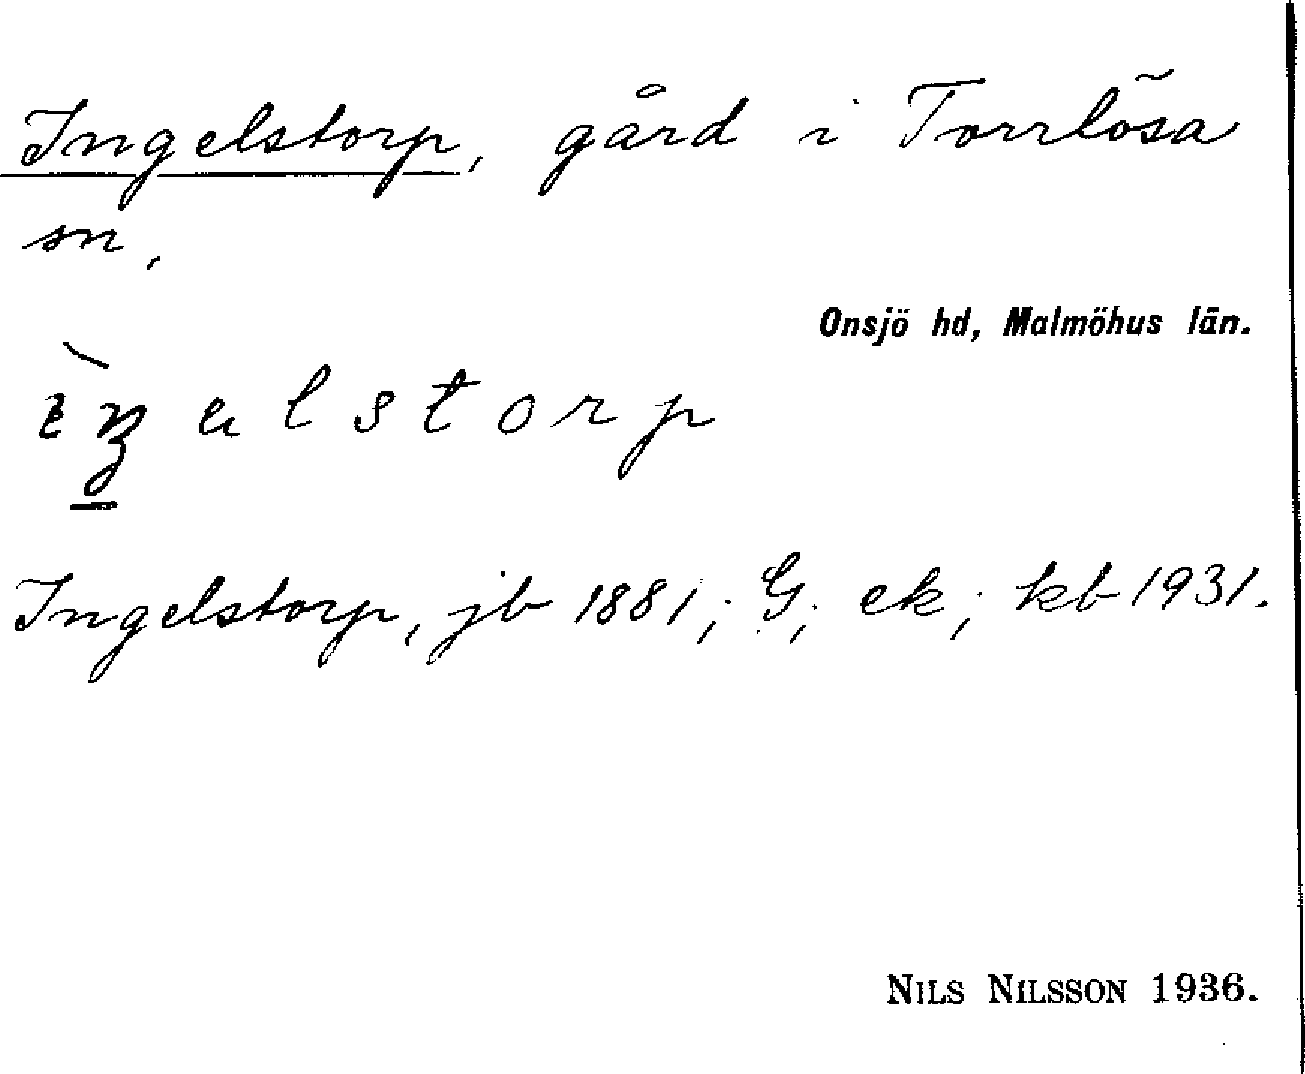 Ingelstorp, gård i Torrlösa
sn,
Onsjö hd, Malmöhus län.
Ingelstorp, jb 1881; G; ek; kb 1931.
NILS NILSSON 1936.